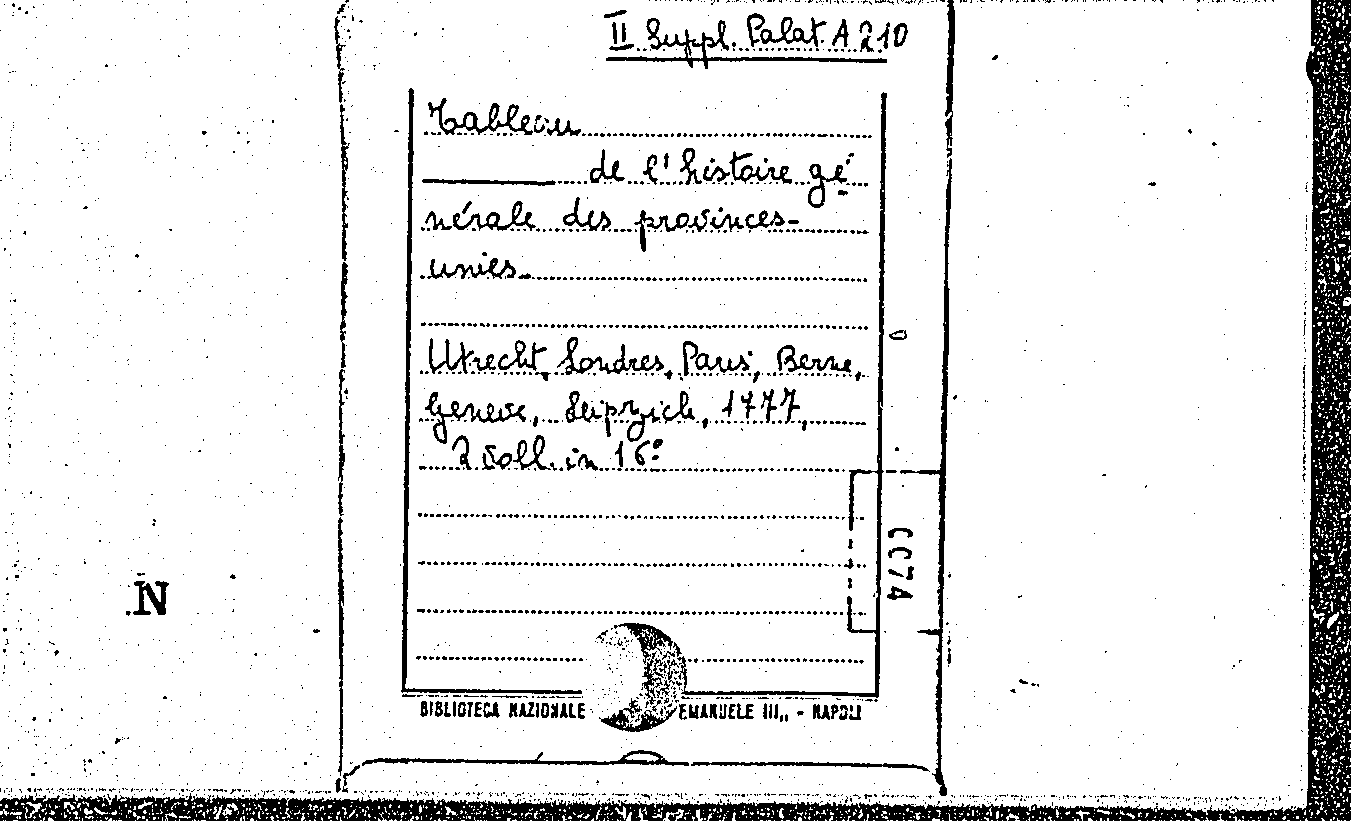 II Suppl. Palat. A 210
Tableau
de l'histoire gé-
nérale des provinces-
unies.
Utrecht, Londres, Paris, Berne,
Geneve, Leipzich, 1777,
2 voll. in 16º
CC74
N
BIBLIOTECA NAZIONALE EMANUELE III,, - NAPOLI